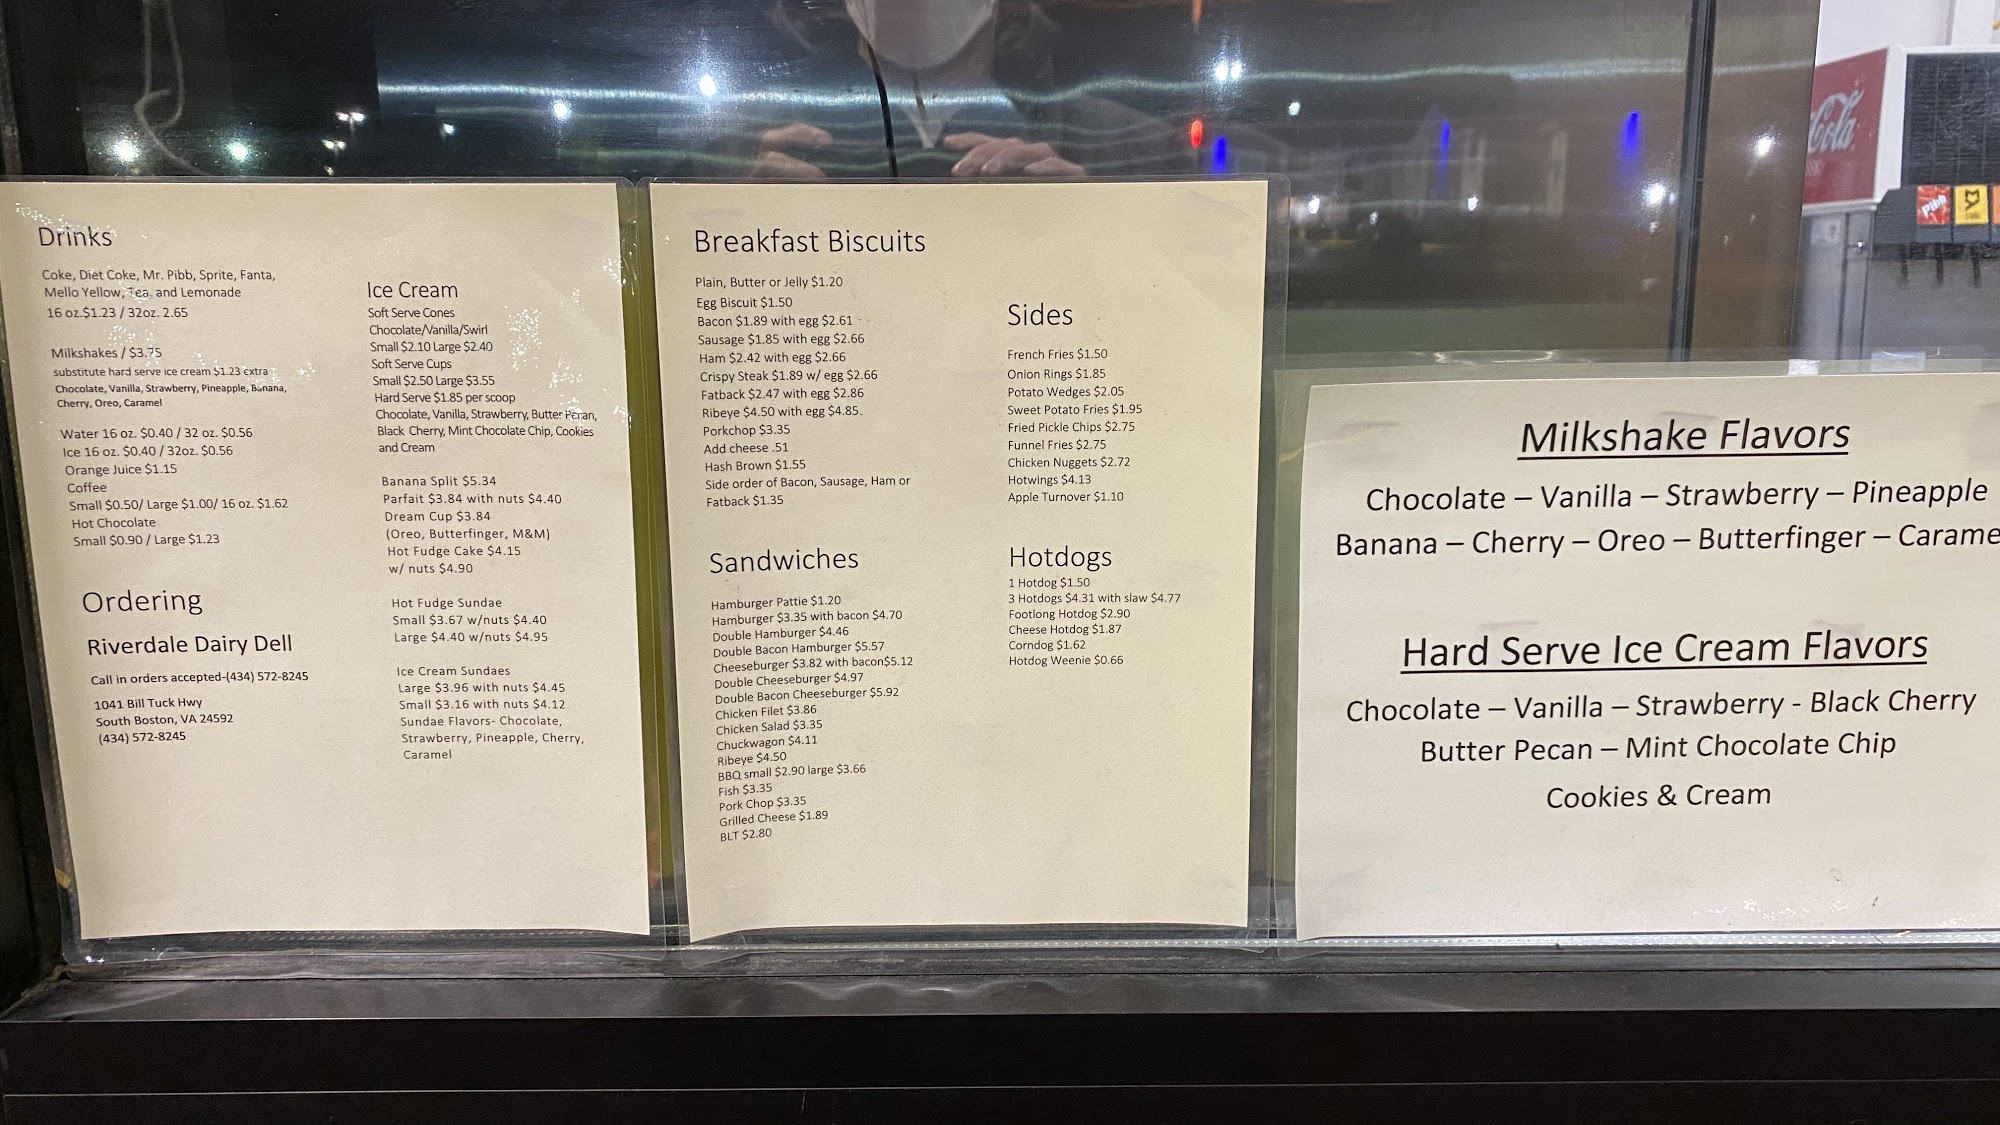 Drinks
Coke, Diet Coke, Mr. Pibb, Sprite, Fanta,
Mello Yellow, Tea, and Lemonade
16 oz.$1.23 / 32oz. 2.65
Milkshakes / $3.75
substitute hard serve ice cream $1.23 extra
Chocolate, Vanilla, Strawberry, Pineapple, Banana,
Cherry, Oreo, Caramel
Water 16 oz. $0.40 / 32 oz. $0.56
Ice 16 oz. $0.40 / 32oz. $0.56
Orange Juice $1.15
Coffee
Small $0.50/ Large $1.00/ 16 oz. $1.62
Hot Chocolate
Small $0.90 / Large $1.23
Ordering
Riverdale Dairy Dell
Call in orders accepted-(434) 572-8245
1041 Bill Tuck Hwy
South Boston, VA 24592
(434) 572-8245
Ice Cream
Soft Serve Cones
Chocolate/Vanilla/Swirl
Small $2.10 Large $2.40
Soft Serve Cups
Small $2.50 Large $3.55
Hard Serve $1.85 per scoop
Chocolate, Vanilla, Strawberry, Butter Pecan,
Black Cherry, Mint Chocolate Chip, Cookies
and Cream
Banana Split $5.34
Parfait $3.84 with nuts $4.40
Dream Cup $3.84
(Oreo, Butterfinger, M&M)
Hot Fudge Cake $4.15
w/ nuts $4.90
Hot Fudge Sundae
Small $3.67 w/nuts $4.40
Large $4.40 w/nuts $4.95
Ice Cream Sundaes
Large $3.96 with nuts $4.45
Small $3.16 with nuts $4.12
Sundae Flavors- Chocolate,
Strawberry, Pineapple, Cherry,
Caramel
Breakfast Biscuits
Plain, Butter or Jelly $1.20
Egg Biscuit $1.50
Bacon $1.89 with egg $2.61
Sausage $1.85 with egg $2.66
Ham $2.42 with egg $2.66
Crispy Steak $1.89 w/ egg $2.66
Fatback $2.47 with egg $2.86
Ribeye $4.50 with egg $4.85.
Porkchop $3.35
Add cheese .51
Hash Brown $1.55
Side order of Bacon, Sausage, Ham or
Fatback $1.35
Sandwiches
Hamburger Pattie $1.20
Hamburger $3.35 with bacon $4.70
Double Hamburger $4.46
Double Bacon Hamburger $5.57
Cheeseburger $3.82 with bacon$5.12
Double Cheeseburger $4.97
Double Bacon Cheeseburger $5.92
Chicken Filet $3.86
Chicken Salad $3.35
Chuckwagon $4.11
Ribeye $4.50
BBQ small $2.90 large $3.66
Fish $3.35
Pork Chop $3.35
Grilled Cheese $1.89
BLT $2.80
Sides
French Fries $1.50
Onion Rings $1.85
Potato Wedges $2.05
Sweet Potato Fries $1.95
Fried Pickle Chips $2.75
Funnel Fries $2.75
Chicken Nuggets $2.72
Hotwings $4.13
Apple Turnover $1.10
Hotdogs
1 Hotdog $1.50
3 Hotdogs $4.31 with slaw $4.77
Footlong Hotdog $2.90
Cheese Hotdog $1.87
Corndog $1.62
Hotdog Weenie $0.66
Milkshake Flavors
Chocolate – Vanilla – Strawberry – Pineapple
Banana – Cherry – Oreo – Butterfinger – Carame
Hard Serve Ice Cream Flavors
Chocolate – Vanilla – Strawberry - Black Cherry
Butter Pecan – Mint Chocolate Chip
Cookies & Cream
Cola
Pibb